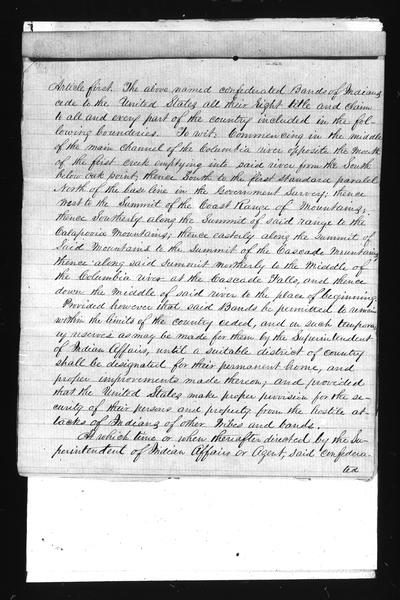 Article first. The above named confederated Bands of Indians
cede to the United States all their right title and claim
to all and every part of the country included in the fol-
lowing boundaries. To wit: Commencing in the middle
of the main channel of the Columbia river opposite the Mouth
of the first creek emptying into said river from the South
below oak point; thence South to the first Standard parallel
North of the base line in the Government Survey; thence
west to the Summit of the Coast Range of Mountains;
thence Southerly along the Summit of said range to the
Calapooia Mountains; thence easterly along the Summit of
Said Mountains to the Summit of the Cascade Mountains;
thence along said Summit northerly to the Middle of
the Columbia river at the Cascade Falls, and thence
down the Middle of said river to the place of beginning.
Provided however that said Bands be permitted to remain
within the limits of the country ceded, and on such tempora-
ry reserves as may be made for them by the Superintendent
of Indian Affairs, until a suitable district of country
shall be designated for their permanent home, and
proper improvements made thereon, and provided
that the United States make proper provision for the se-
curity of their persons and property from the hostile at-
tacks of Indians of other tribes and bands.
At which time or when thereafter directed by the Su-
perintendent of Indian Affairs or Agent, said confedera-
ted